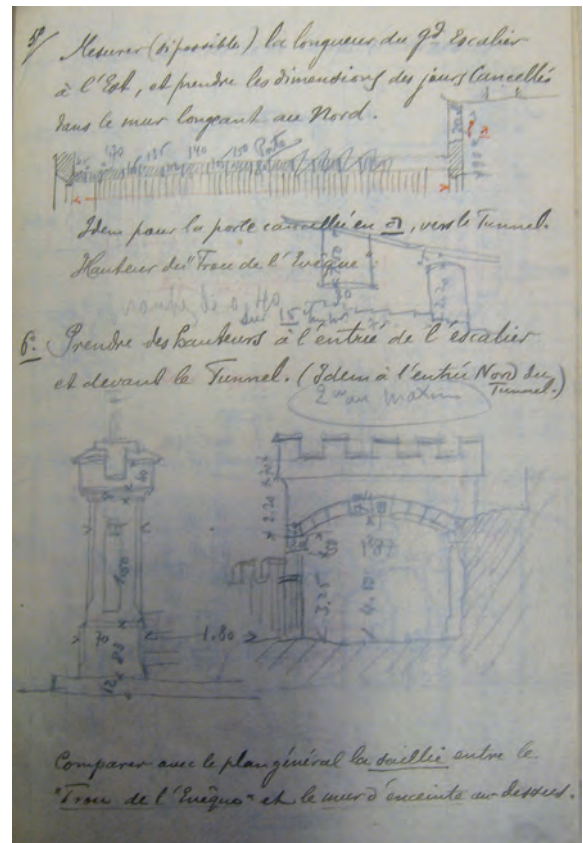 5º/ Mesurer (si possible) la longueur du gd Escalier
à l'Est, et prendre les dimensions des jours Cancellés
dans le mur longeant au Nord.
170 135 140 150 Porte
Idem pour la porte cancellée en a, vers le Tunnel.
Hauteur du "Trou de l'Evêque
rampe de 0,40
sur 15
2.20
6º Prendre des hauteurs à l'entrée de l'escalier
et devant le Tunnel. (Idem à l'entrée Nord du
Tunnel.)
2m au maxim
2.20
1.87
3.25
1.80
70
88
12
Comparer avec le plan général la saillie entre le
"Trou de l'Evêque" et le mur d'enceinte au dessus.